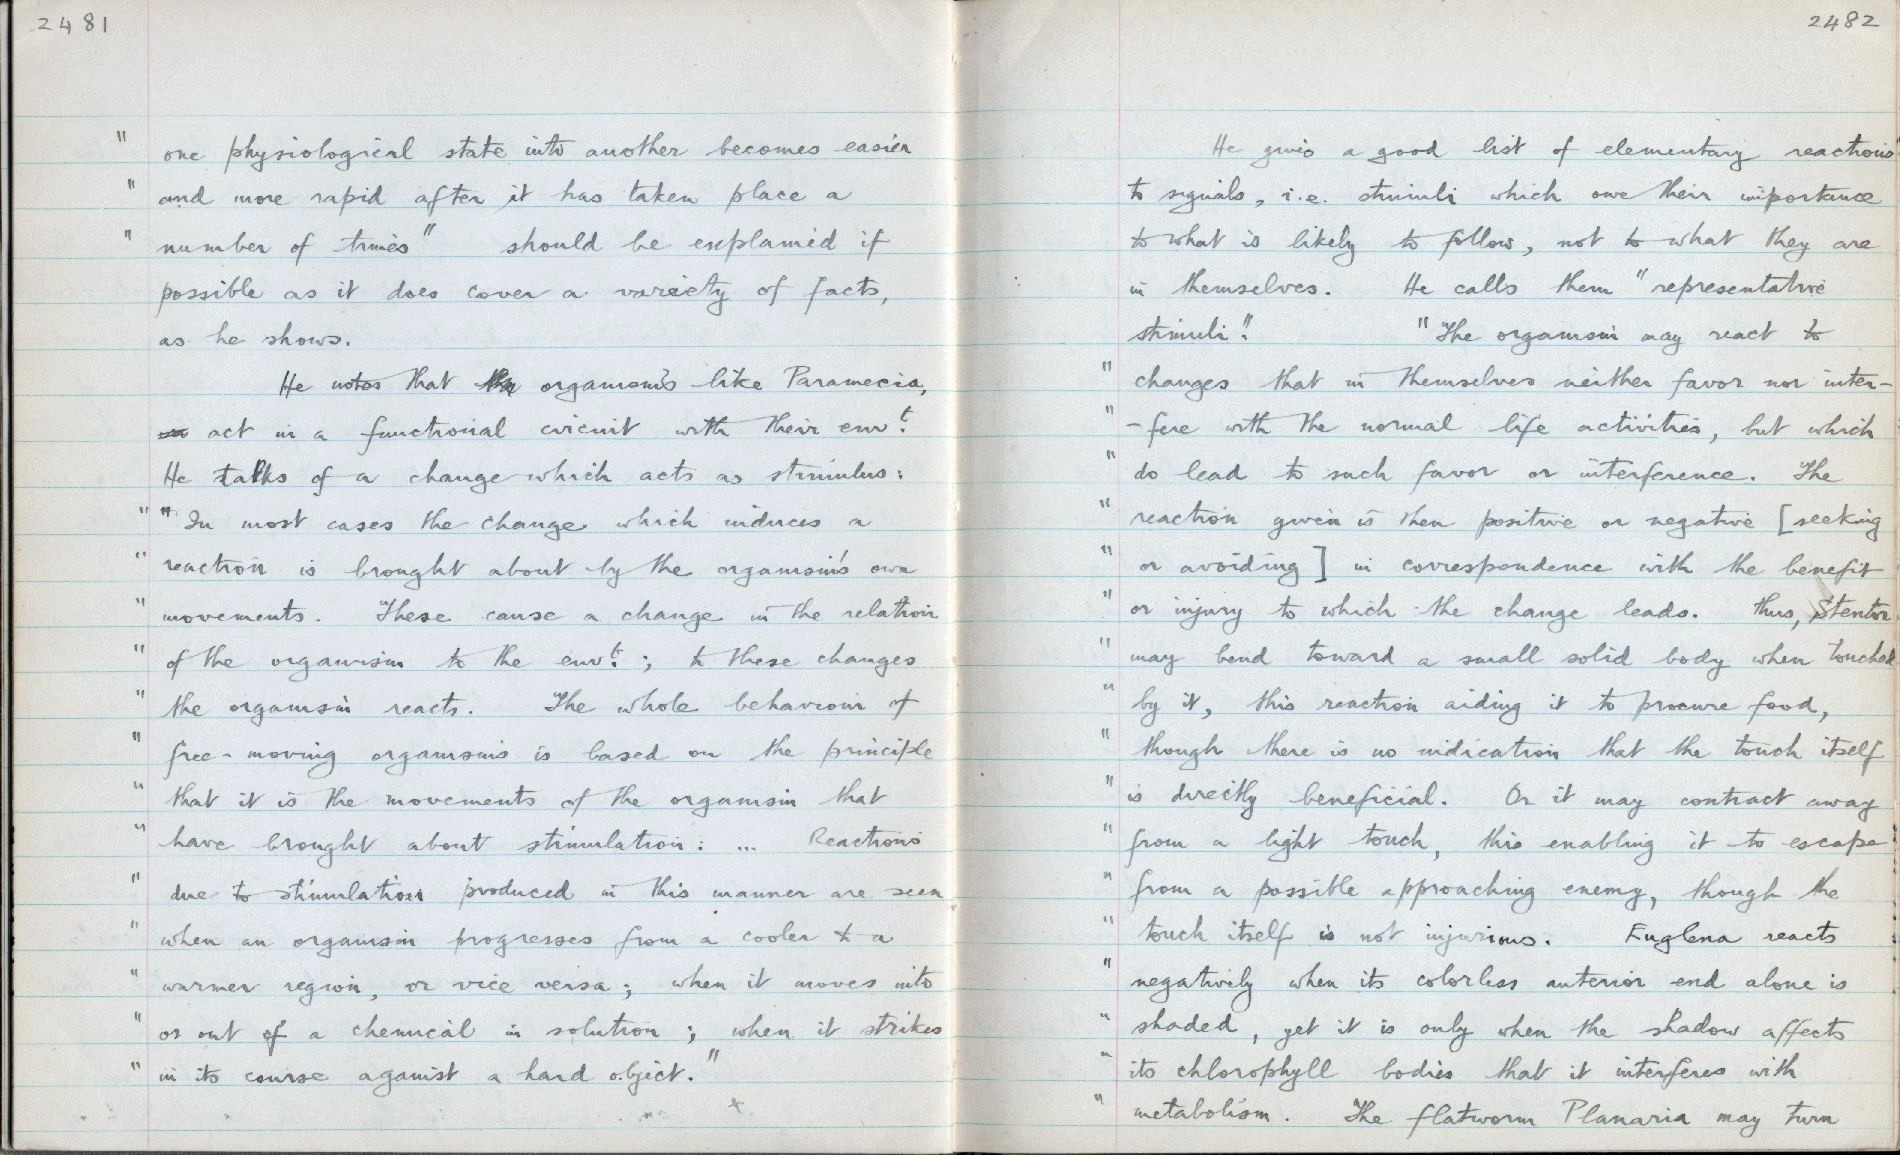 2481
" one physiological state into another becomes easier
" and more rapid after it has taken place a
" number of times" should be explained if
possible as it does cover a variety of facts,
as he shows.
He notes that organisms like Paramecia,
act in a functional circuit with their envt.
He talks of a change which acts as stimulus:
" "In most cases the change which induces a
" reaction is brought about by the organism's own
" movements. These cause a change in the relation
" of the organism to the envt.; to these changes
" the organism reacts. The whole behaviour of
" free-moving organisms is based on the principle
" that it is the movements of the organism that
" have brought about stimulation: ... Reactions
" due to stimulation produced in this manner are seen
" when an organism progresses from a cooler to a
" warmer region, or vice versa; when it moves into
" or out of a chemical in solution; when it strikes
" in its course against a hard object."
2482
He gives a good list of elementary reactions
to signals, i.e. stimuli which owe their importance
to what is likely to follow, not to what they are
in themselves. He calls them "representative
stimuli". "The organism may react to
" changes that in themselves neither favor nor inter-
" -fere with the normal life activities, but which
" do lead to such favor or interference. The
" reaction given is then positive or negative [seeking
" or avoiding] in correspondence with the benefit
" or injury to which the change leads. Thus, Stentor
" may bend toward a small solid body when touched
" by it, this reaction aiding it to procure food,
" though there is no indication that the touch itself
" is directly beneficial. Or it may contract away
" from a light touch, this enabling it to escape
" from a possible approaching enemy, though the
" touch itself is not injurious. Euglena reacts
" negatively when its colorless anterior end alone is
" shaded, yet it is only when the shadow affects
" its chlorophyll bodies that it interferes with
" metabolism. The flatworm Planaria may turn